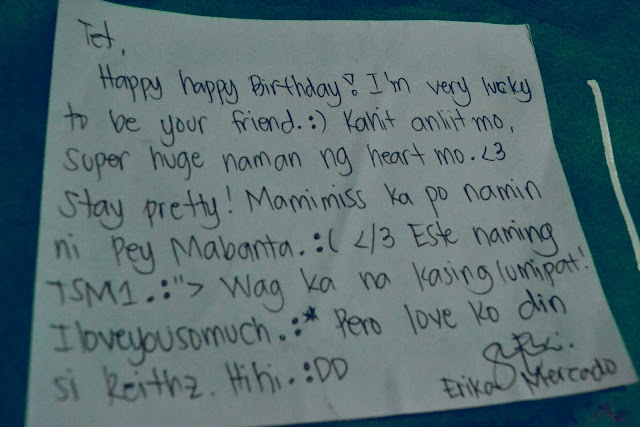 Tet,
Happy happy Birthday! I'm very lucky
to be your friend.:) Kahit anliit mo,
super huge naman ng heart mo.<3
Stay pretty! Mamimiss ka po namin
ni Pey Mabanta.:( </3 Este naming
TSM1.:"> Wag ka na kasing lumipat!
Iloveyousomuch.:* Pero love ko din
si Keithz. Hihi.:DD
Erika Mercado